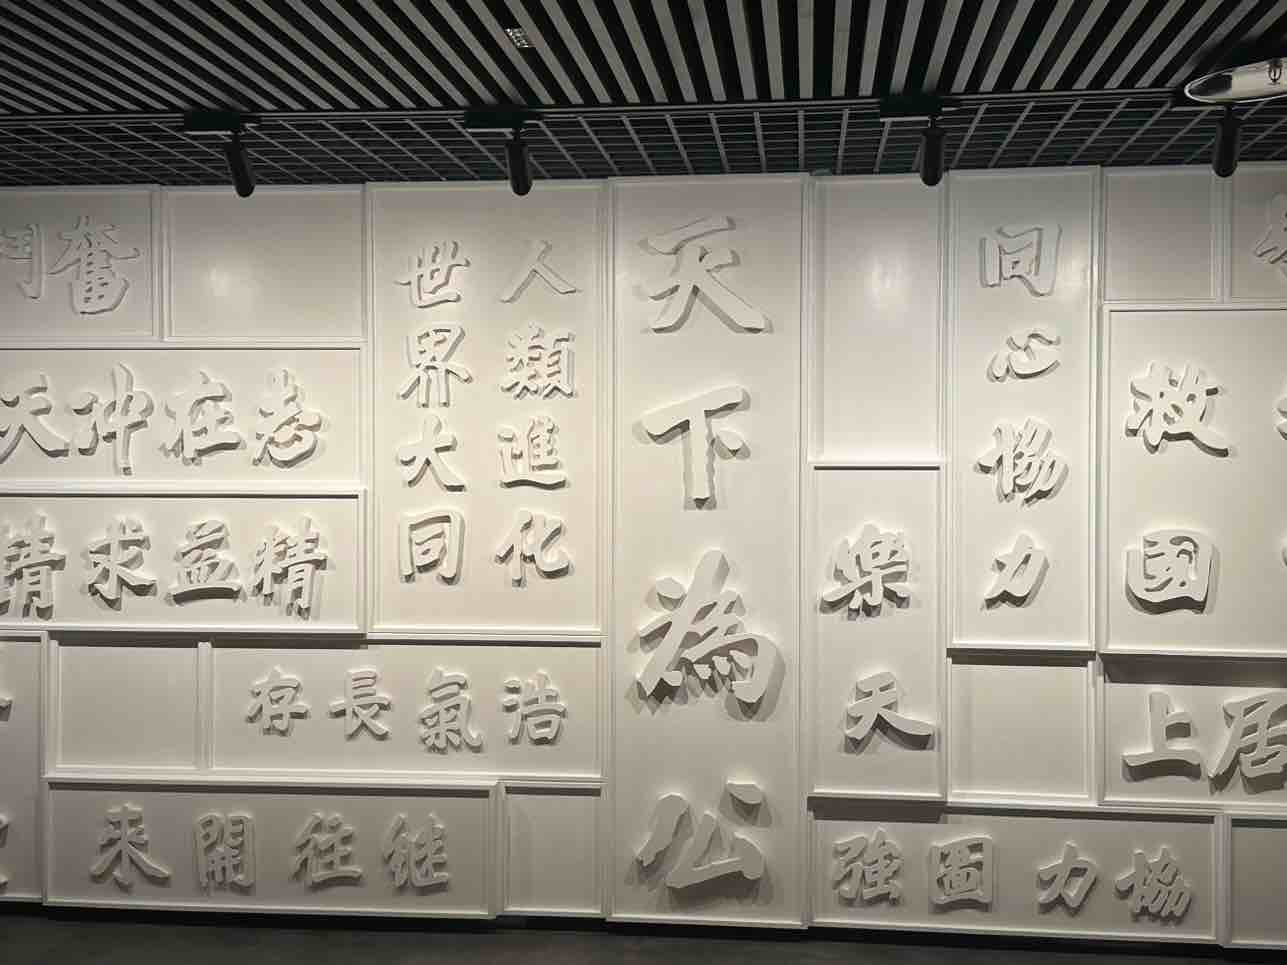 救國
居上
同心協力
樂天
協力圖強
天下為公
人類進化
世界大同
浩氣長存
继往開來
奮
志在冲天
精益求精